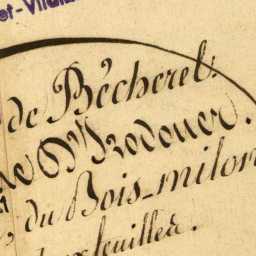 et-Vilai
de Bécherel.
de St Modouer.
du Bois-milon
feuilles.